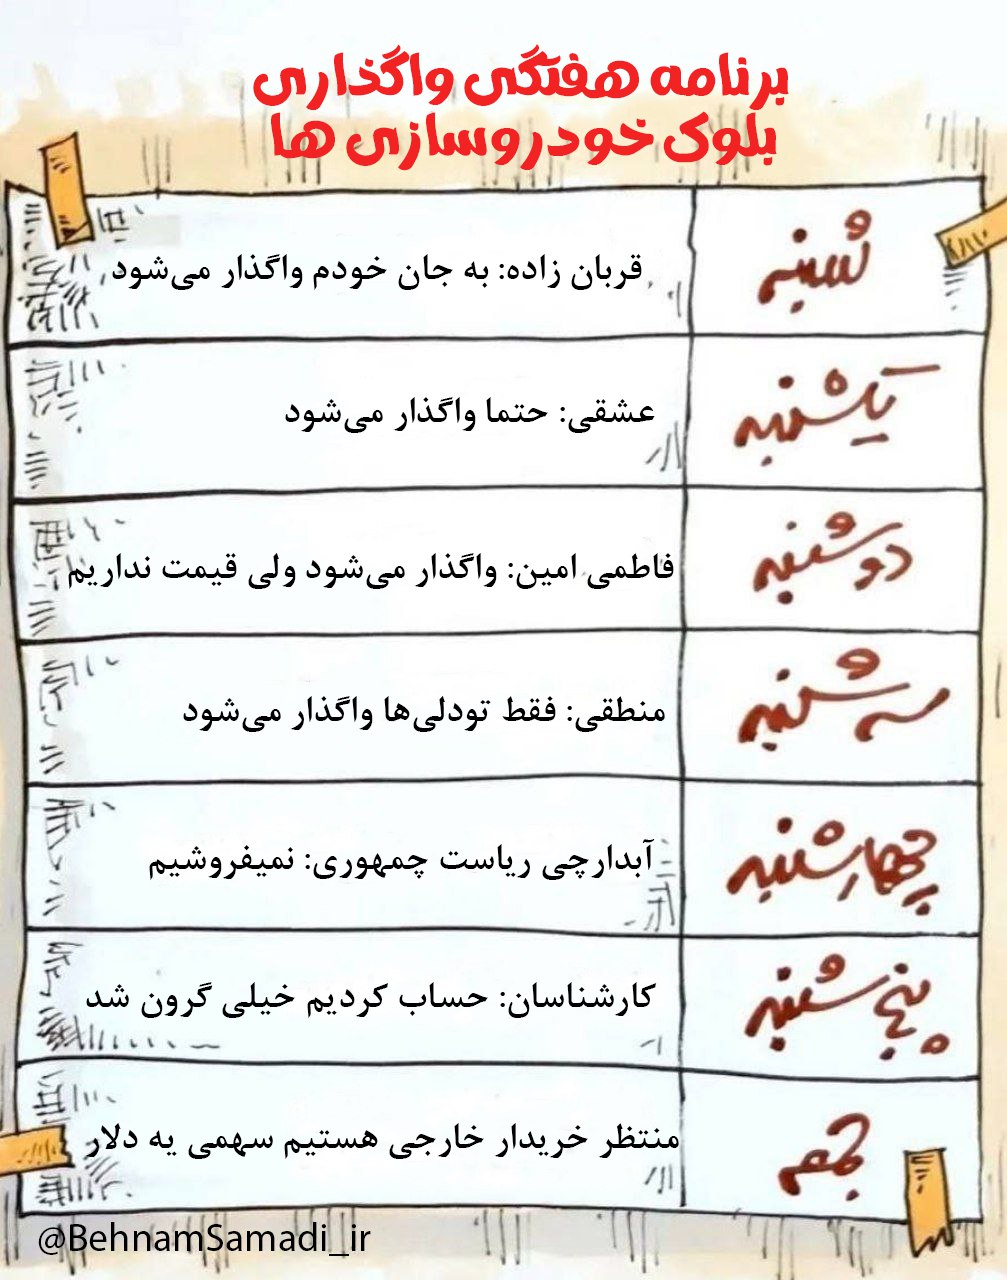 برنامه هفتگی واگذاری
بلوک خودروسازی ها
شنبه
قربان زاده: به جان خودم واگذار می‌شود
یکشنبه
عشقی: حتما واگذار می‌شود
دوشنبه
فاطمی امین: واگذار می‌شود ولی قیمت نداریم
سه شنبه
منطقی: فقط تودلی‌ها واگذار می‌شود
چهارشنبه
آبدارچی ریاست چمهوری: نمیفروشیم
پنجشنبه
کارشناسان: حساب کردیم خیلی گرون شد
جمعه
منتظر خریدار خارجی هستیم سهمی یه دلار
@BehnamSamadi_ir